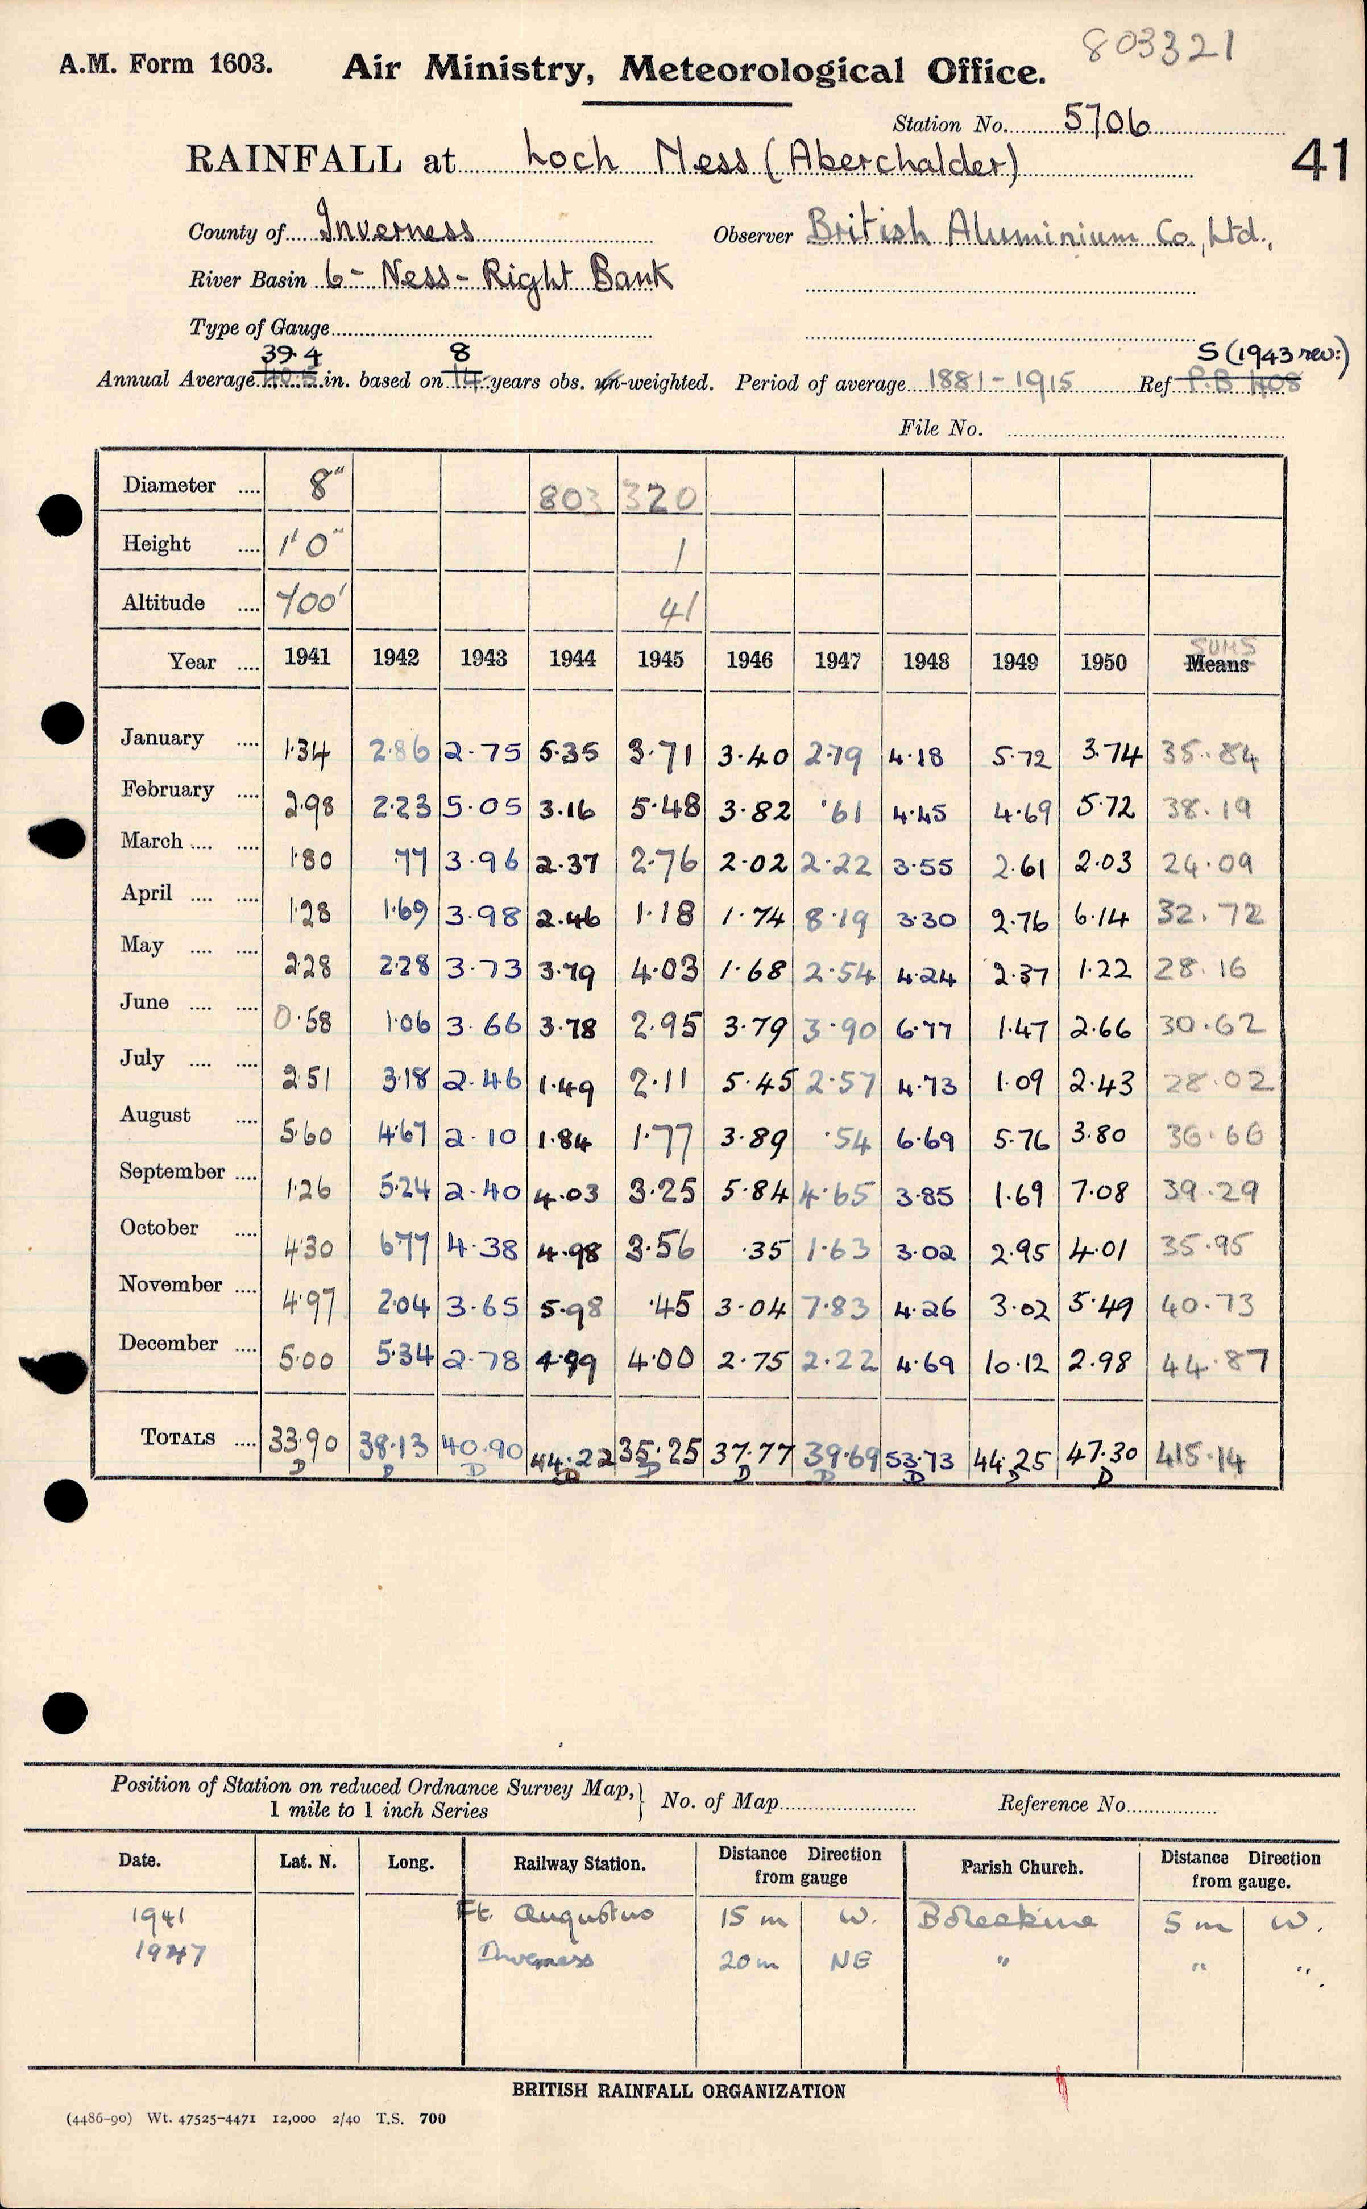 803321
A.M. Form 1603. Air Ministry, Meteorological Office.
Station No. 5706
41
RAINFALL at Loch Ness (Aberchalder)
County of Inverness Observer British Aluminium Co., Ltd.,
River Basin 6 - Ness - Right Bank
Type of Gauge
39.4 8 S (1943 rev:)
Annual Average 40.5 in. based on 14 years obs. un-weighted. Period of average 1881-1915 Ref P.B 408
File No.
Diameter .... 8" 803 320
Height .... 1' 0" 1
Altitude .... 700' 41
SUMS
Year .... 1941 1942 1943 1944 1945 1946 1947 1948 1949 1950 Means
January .... 1.34 2.86 2.75 5.35 3.71 3.40 2.79 4.18 5.72 3.74 35.84
February .... 2.98 2.23 5.05 3.16 5.48 3.82 .61 4.45 4.69 5.72 38.19
March .... .... 1.80 .77 3.96 2.37 2.76 2.02 2.22 3.55 2.61 2.03 24.09
April .... .... 1.28 1.69 3.98 2.46 1.18 1.74 8.19 3.30 2.76 6.14 32.72
May .... .... 2.28 2.28 3.73 3.79 4.03 1.68 2.54 4.24 2.37 1.22 28.16
June .... .... 0.58 1.06 3.66 3.78 2.95 3.79 3.90 6.77 1.47 2.66 30.62
July .... .... 2.51 3.18 2.46 1.49 2.11 5.45 2.57 4.73 1.09 2.43 28.02
August .... 5.60 4.67 2.10 1.84 1.77 3.89 .54 6.69 5.76 3.80 36.66
September .... 1.26 5.24 2.40 4.03 3.25 5.84 4.65 3.85 1.69 7.08 39.29
October .... 4.30 6.77 4.38 4.98 3.56 .35 1.63 3.02 2.95 4.01 35.95
November .... 4.97 2.04 3.65 5.98 .45 3.04 7.83 4.26 3.02 5.49 40.73
December .... 5.00 5.34 2.78 4.99 4.00 2.75 2.22 4.69 10.12 2.98 44.87
TOTALS .... 33.90 38.13 40.90 44.22 35.25 37.77 39.69 53.73 44.25 47.30 415.14
D D D D D D D D D D
Position of Station on reduced Ordnance Survey Map, 1 mile to 1 inch Series } No. of Map Reference No.
Date. Lat. N. Long. Railway Station. Distance Direction from gauge Parish Church. Distance Direction from gauge.
1941 Ft. Augustus 15 m W. Boleskine 5 m W.
1947 Inverness 20 m NE " " ".
BRITISH RAINFALL ORGANIZATION
(4486-90) Wt. 47525-4471 12,000 2/40 T.S. 700